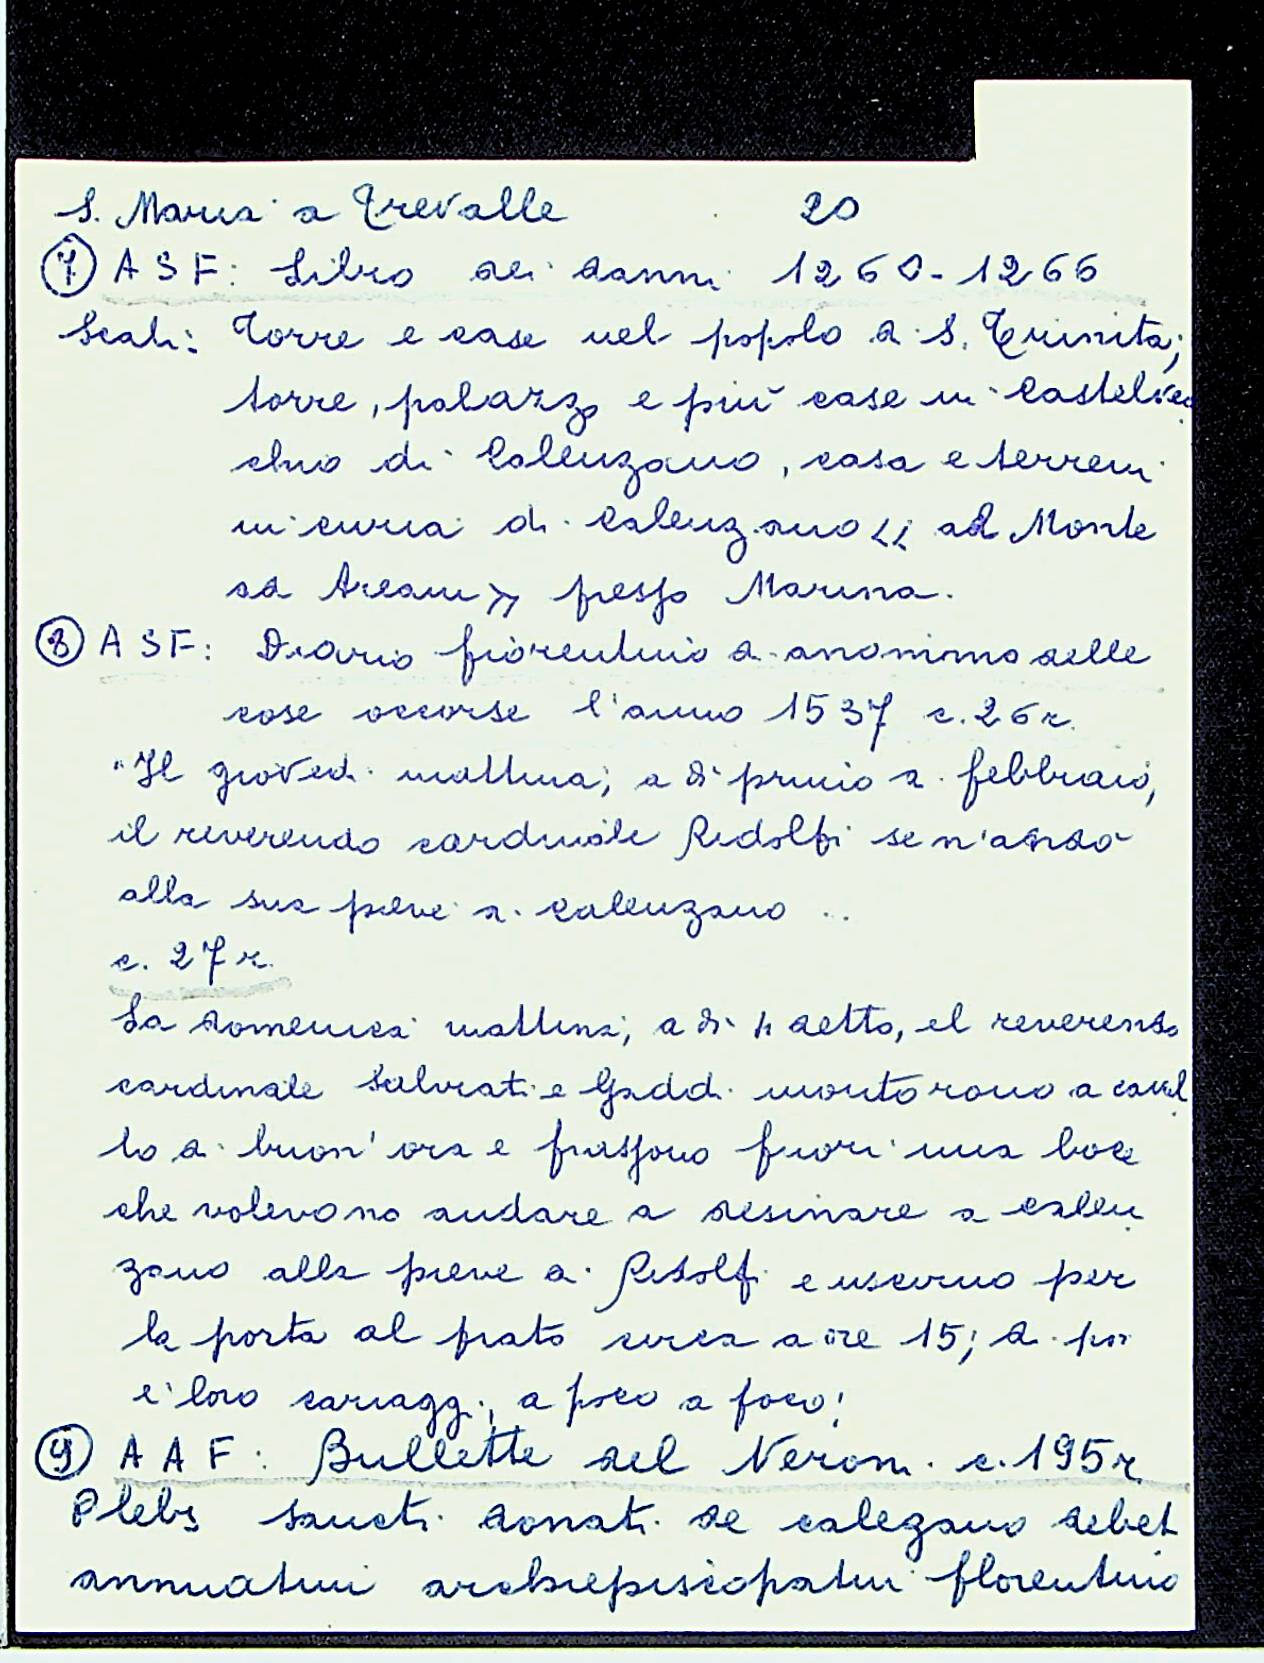 S. Maria a Trevalle 20
7 ASF: Libro dei danni 1260-1266
Scali: Torre e case nel popolo di S. Trinita;
torre, palazzo e più case in Castelvec
chio di Calenzano, casa e terreni
in curia di Calenzano << al Monte
ad Aream >> presso Marina.
8 ASF: Diario fiorentino di anonimo delle
cose occorse l'anno 1537 c. 26r.
"Il giovedì mattina, a dì primo di febbraio,
il reverendo cardinale Ridolfi se n'andò
alla sua pieve di Calenzano ..
c. 27r.
La domenica mattina, a dì 4 detto, el reverendo
cardinale Salviati e Gaddi montorono a caval
lo di buon' ora e fuori una boce
che volevono andare a desinare a Calen
zano alla pieve di Ridolfi e uscirno per
la porta al prato circa a ore 15; di poi
e' loro cariaggi, a poco a poco!
9 AAF: Bullette del Neroni c. 195r
Plebs sancti donati de calezano debet
annuatim archiepiscopatui florentino